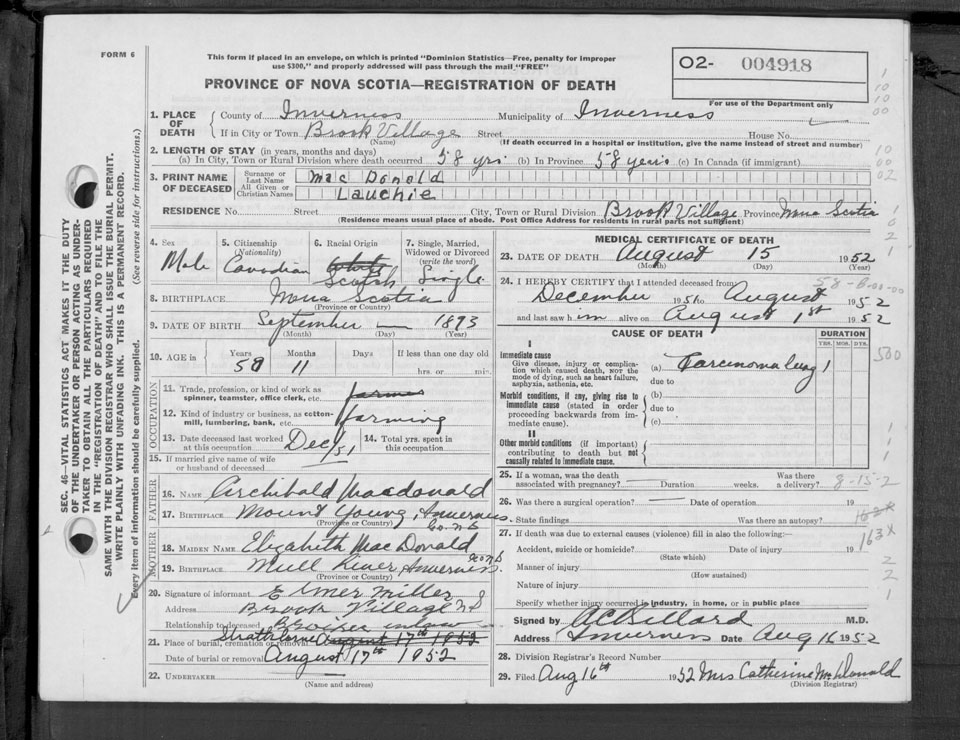 FORM 6
This form if placed in an envelope, on which is printed "Dominion Statistics—Free, penalty for improper
use $300," and properly addressed will pass through the mail "FREE"
PROVINCE OF NOVA SCOTIA—REGISTRATION OF DEATH
O2- 004918
For use of the Department only
SEC. 46—VITAL STATISTICS ACT MAKES IT THE DUTY
OF THE UNDERTAKER OR PERSON ACTING AS UNDER-
TAKER TO OBTAIN ALL THE PARTICULARS REQUIRED
IN THE "REGISTRATION OF DEATH" AND TO FILE THE
SAME WITH THE DIVISION REGISTRAR WHO SHALL ISSUE THE BURIAL PERMIT.
WRITE PLAINLY WITH UNFADING INK. THIS IS A PERMANENT RECORD.
Every item of information should be carefully supplied. (See reverse side for instructions.)
1. PLACE OF DEATH
County of Inverness Municipality of Inverness
If in City or Town Brook Village Street House No.
(Name) (If death occurred in a hospital or institution, give the name instead of street and number)
2. LENGTH OF STAY (in years, months and days)
(a) In City, Town or Rural Division where death occurred 58 yrs (b) In Province 58 years (c) In Canada (if immigrant)
3. PRINT NAME OF DECEASED
Surname or Last Name Mac Donald
All Given or Christian Names Lauchie
RESIDENCE No. Street City, Town or Rural Division Brook Village Province Nova Scotia
(Residence means usual place of abode. Post Office Address for residents in rural parts not sufficient)
4. Sex 5. Citizenship (Nationality) 6. Racial Origin 7. Single, Married, Widowed or Divorced (write the word)
Male Canadian White Scotch Single
8. BIRTHPLACE Nova Scotia
(Province or Country)
9. DATE OF BIRTH September — 1893
(Month) (Day) (Year)
10. AGE in Years Months Days If less than one day old
58 11 hrs. or min.
OCCUPATION
11. Trade, profession, or kind of work as spinner, teamster, office clerk, etc. farmer
12. Kind of industry or business, as cotton-mill, lumbering, bank, etc. farming
13. Date deceased last worked at this occupation Dec/51 14. Total yrs. spent in this occupation
15. If married give name of wife or husband of deceased
FATHER
16. NAME Archibald Macdonald
17. BIRTHPLACE Mount Young, Inverness Co. N S
(Province or Country)
MOTHER
18. MAIDEN NAME Elizabeth MacDonald
19. BIRTHPLACE Mull River, Inverness Co N S
(Province or Country)
20. Signature of informant Elmer Miller
Address Brook Village N S
Relationship to deceased inlaw
21. Place of burial, cremation or removal Strathlorne August 17th 1952
Date of burial or removal August 17th 1952
22. UNDERTAKER
(Name and address)
MEDICAL CERTIFICATE OF DEATH
23. DATE OF DEATH August 15 1952
(Month) (Day) (Year)
24. I HEREBY CERTIFY that I attended deceased from:
December 1951 to August 1952
and last saw him alive on August 1st 1952
CAUSE OF DEATH DURATION
YRS. MOS. DYS.
I
Immediate cause
Give disease, injury or complication which caused death, NOT the mode of dying, such as heart failure, asphyxia, asthenia, etc.
(a) Carcinoma lung 1
due to
Morbid conditions, if any, giving rise to immediate cause (stated in order proceeding backwards from immediate cause).
(b)
due to
(c)
II
Other morbid conditions (if important) contributing to death but not causally related to immediate cause.
25. If a woman, was the death associated with pregnancy? Duration weeks. Was there a delivery? 8-15-2
26. Was there a surgical operation? Date of operation 19
State findings Was there an autopsy?
27. If death was due to external causes (violence) fill in also the following:— 163X
Accident, suicide or homicide? Date of injury 19
(State which)
Manner of injury
(How sustained)
Nature of injury
Specify whether injury occurred in industry, in home, or in public place
Signed by M.D.
Address Inverness Date Aug 16 1952
28. Division Registrar's Record Number
29. Filed Aug 16th 1952 Mrs Catherine McDonald
(Division Registrar)